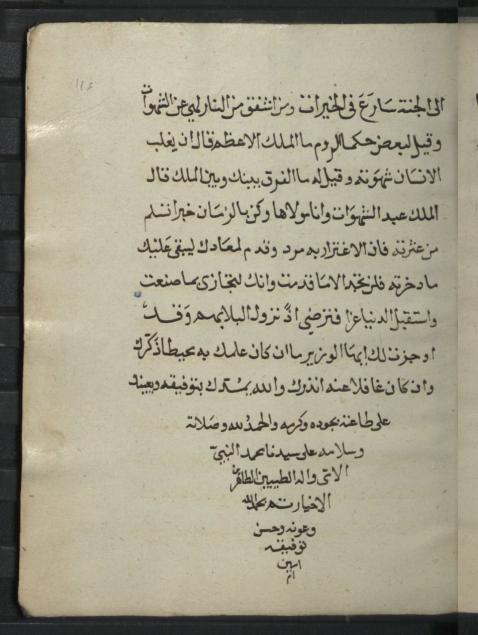 الى الجنة سارَعَ فى الخيرات ومن اشفق من النار لهى عن الشهوات
وقيل لبعض حكما الروم ما الملك الاعظم قال ان يغلب
الانسان شهوته وقيل له ما الفرق بينك وبين الملك قال
الملك عبد الشهوات وانا مولاها وكن بالزمان خبيرا تسلم
من عثرته فان الاغترار به مرد وقدم لمعادك ليبقى عليك
ما دخرته فلن تجد الا ما قدمت وانك لتجازى بما صنعت
واستقبل الدنيا نزول البلا بهم وقد
اوجزت لك ايها الوزير ما ان كان علمك به محيط اذكرك
وان كان غافلا عنه انذرك والله يمدك بتوفيقه ويعينك
على طاعته بجوده وكرمه والحمد لله وصلاته
وسلامه على سيدنا محمد النبىّ
الامى واله الطيبين الطاهرين
الاخيار تم بحمد الله
وعونه وحسن
توفيقه
امين